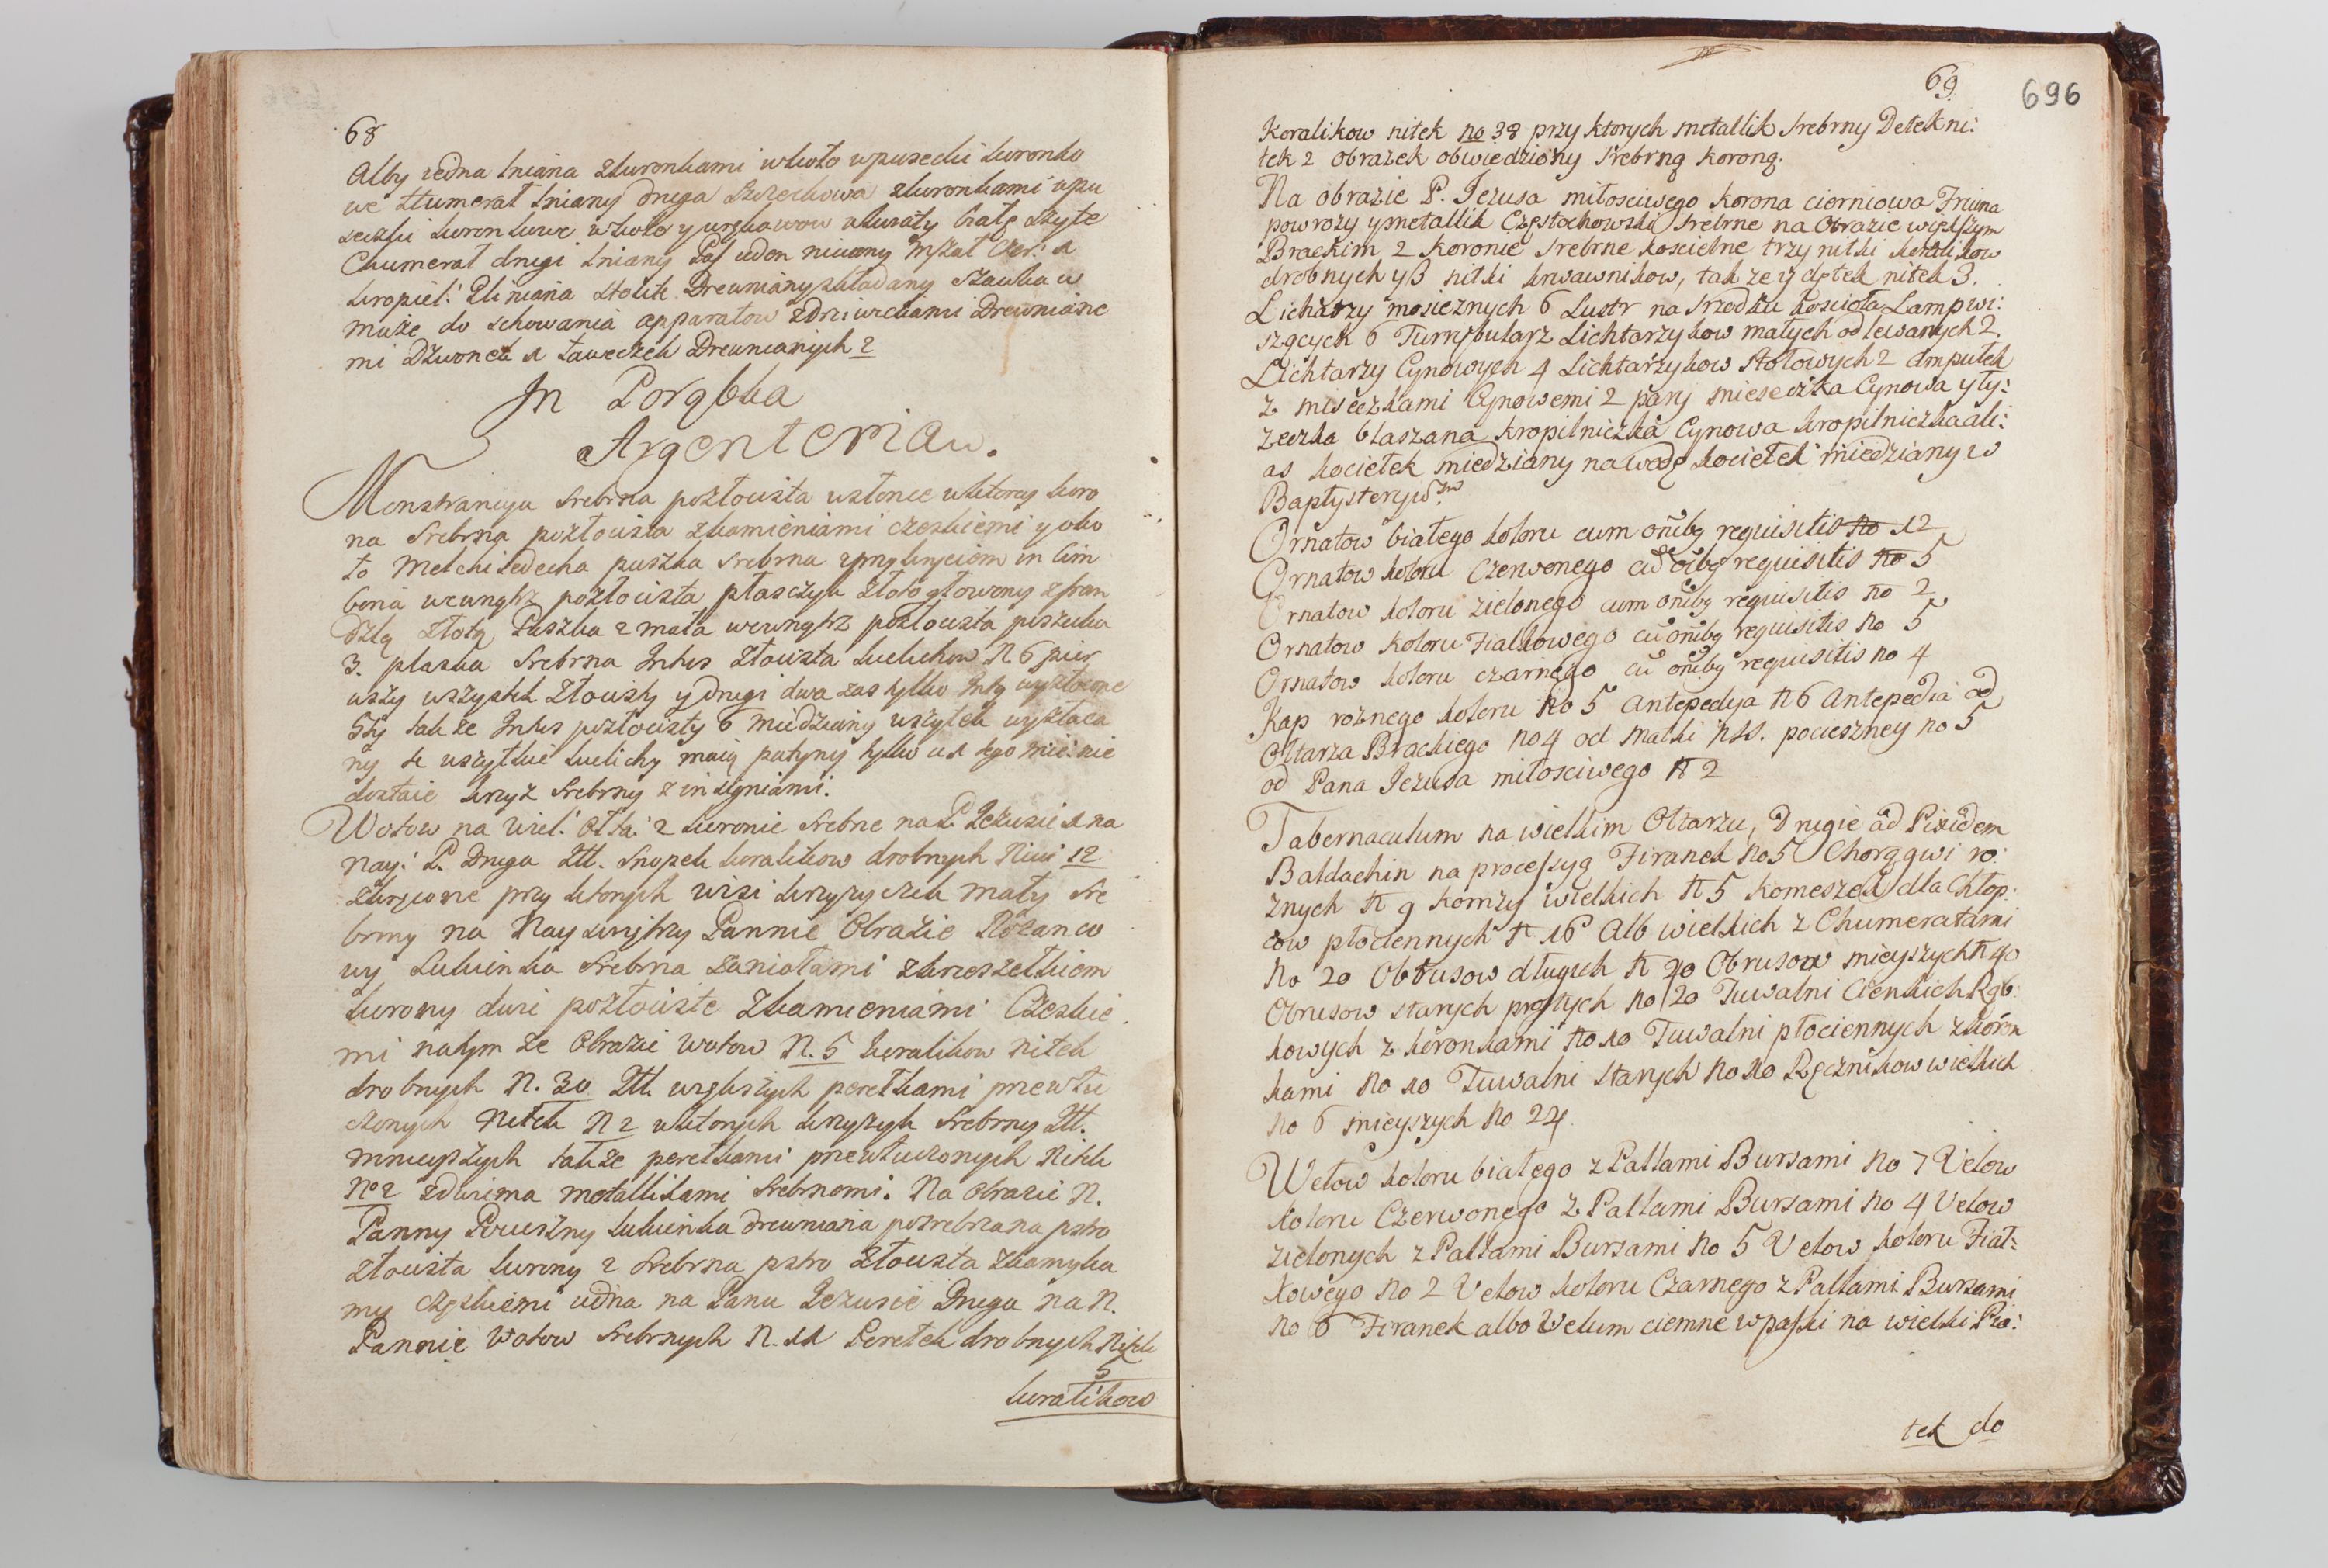 68
Alby jedna lniana z koronkami wkoło w pusecki koronko
we Humerał lniany druga koronkami wpu
seczki koronkowe wkoło y białe szyte
Chumerał drugi lniany Pas jeden niciany Mszał 1
kropiel: Stolik Drewniany składany Szawka w
murze do schowania apparatow z Drzwiczkami Drewniane
mi Dzwonek 1 Ławeczek Drewnianych 2
In Porąbka
Argenteriau.
Monstrancya srebrna pozłocista w słonce w ktorey koro
na srebrna pozłocista z kamieniami czeskiemi y oko
to Melchisedecha puszka srebrna z przykryciom in Cim
boria wewnątrz pozłocista płasczyk złotogłowowy z fran
dzlą złotą Puszka 2 mała wewnątrz pozłocista puszecka
3. płaska srebrna Intus złocista kielichow N. 6 pier
wszy wszystek złocisty y drugi dwa zas tylko Inty wyzłocone
5ty także Intus pozłocisty 6 miedziany wszytek wyzłaca
ny te wszytkie kielichy maią patyny tylko u 1 tego mie: nie
dostaie krzyż srebrny z insigniami.
Wotow na wiel: Ołta: 2 koronie srebne na P. Jezusie 1 na
Nay: P. Druga Itt. Snopek koralikow drobnych Nici 12
przy ktorych wisi krzyżyczek mały sre
brny na Nayswiętszy Pannie Obrazie Różanco
wy Sukienka srebrna z aniołami z krzesełkiom
korony dwie pozłociste z kamieniami Czeskie
mi na tym że Obrazie wotow N. 5 koralikow nitek
drobnych N. 30. Itt. większych perełkami przewłu
czonych Nitek N 2 w ktorych krzyżyk srebrny Itt.
mnieyszych także perełkami przewłuczonych Nitek
No 2 z dwima metallikami srebrnemi. Na Obrazie N.
Panny Pocieszny Sukienka drewniana posrebrzana pstro
złocista korony 2 srebrna pstro złocista z kamyka
my czeskiemi jedna na Panu Jezusie Druga na N.
Pannie Wotow srebrnych N. 11 Perełek drobnych Nitek
5
koralikow
69
696
Koralikow nitek no 38 przy ktorych metallik srebrny Detek ni:
tek 2 obrazek obwiedziony srebrną koroną.
Na obrazie P. Jezusa miłosciwego korona cierniowa
powrozy y metallik Częstochowski srebrne na Obrazie większym
Brackim 2 koronie srebrne koscielne trzy nitki koralikow
drobnych y 3 nitki krwawnikow, także y dętek nitek 3.
Lichtarzy mosieznych 6 Lustr na srzodku koscioła Lamp wi:
szących 6 Turrybularz Lichtarzykow małych odlewanych 2
Lichtarzy Cynowych 4 Lichtarzykow stołowych 2 Ampułek
z miseczkami Cynowemi 2 pary Cynowa y ły:
zeczka blaszana kropilniczka Cynowa kropilniczka ali:
as kociełek miedziany na wodę kociełek miedziany w
Baptysteryu
Ornatow białego koloru cum omibg requisitis no 12
Ornatow koloru Czerwonego cu oibg requisitis no 5
Ornatow koloru zielonego cum omibg requisitis no 2
Ornatow koloru Fialkowego cu omibg requisitis no 5
Ornatow koloru czarnego cu omibg requisitis no 4
Kap roznego koloru no 5 Antepedya n 6 Antepedia od
Ołtarza Brackiego no 4 od Matki NSS. pocieszney no 5
od Pana Jezusa miłosciwego n 2
Tabernaculum na wielkim Ołtarzu, Drugie ad Pixidem
Baldachin na procesyą Firanek no 5 Chorągwi ro:
znych n 9 komży wielkich n 5 komeszek dla Chłop:
cow płociennych n 16 Alb wielkich z Chumerałami
no 20 Obrusow długich n 20 Obrusow mieyszych n 40
Obrusow starych prostych no 20 Tuwalni cienkich Rąb:
kowych z koronkami no 10 Tuwalni płociennych z koron
kami no 10 Tuwalni starych no 10 Ręcznikow wielkich
no 6 mieyszych no 24.
Welow koloru białego z Pallami Bursami no 7 Velow
koloru Czerwonego z Pallami Bursami no 4 Velow
zielonych z Pallami Bursami no 5 Velow koloru Fiał:
kowego no 2 Velow koloru Czarnego z Pallami Bursami
no 6 Firanek albo Velum ciemne w paski na wielki Pią:
tek do